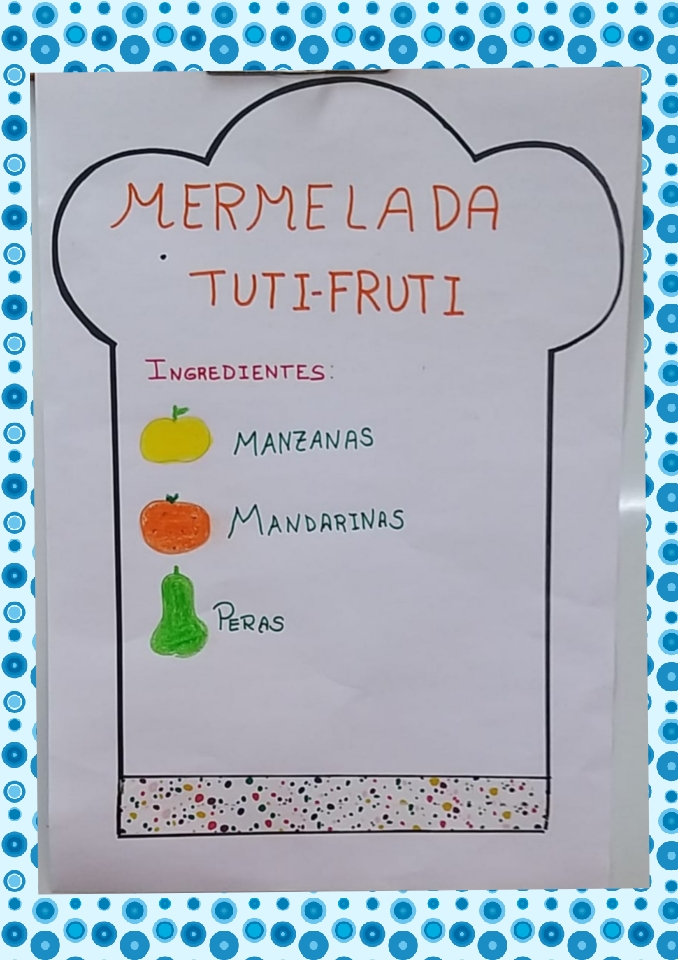 MERMELADA
TUTI-FRUTI
INGREDIENTES:
MANZANAS
MANDARINAS
PERAS